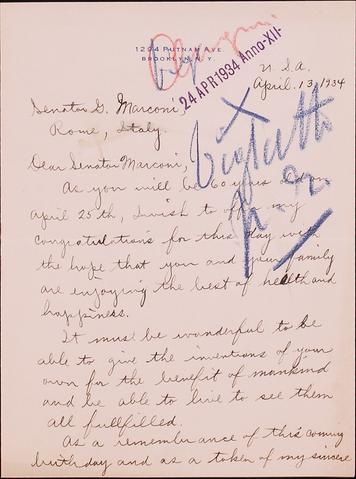 1294 PUTNAM AVE
BROOKLYN, N.Y.
24 APR 1934 Anno-XII-
U.S.A.
April. 13, 1934
Senator G. Marconi,
Rome, Italy.
Dear Senator Marconi,
As you will be 60 years old on
April 25th, I wish to offer my
congratulations for this day with
the hope that you and your family
are enjoying the best of health and
happiness.
It must be wonderful to be
able to give the inventions of your
own for the benefit of mankind
and be able to live to see them
all fullfilled.
As a remembrance of this coming
birthday and as a token of my sincere